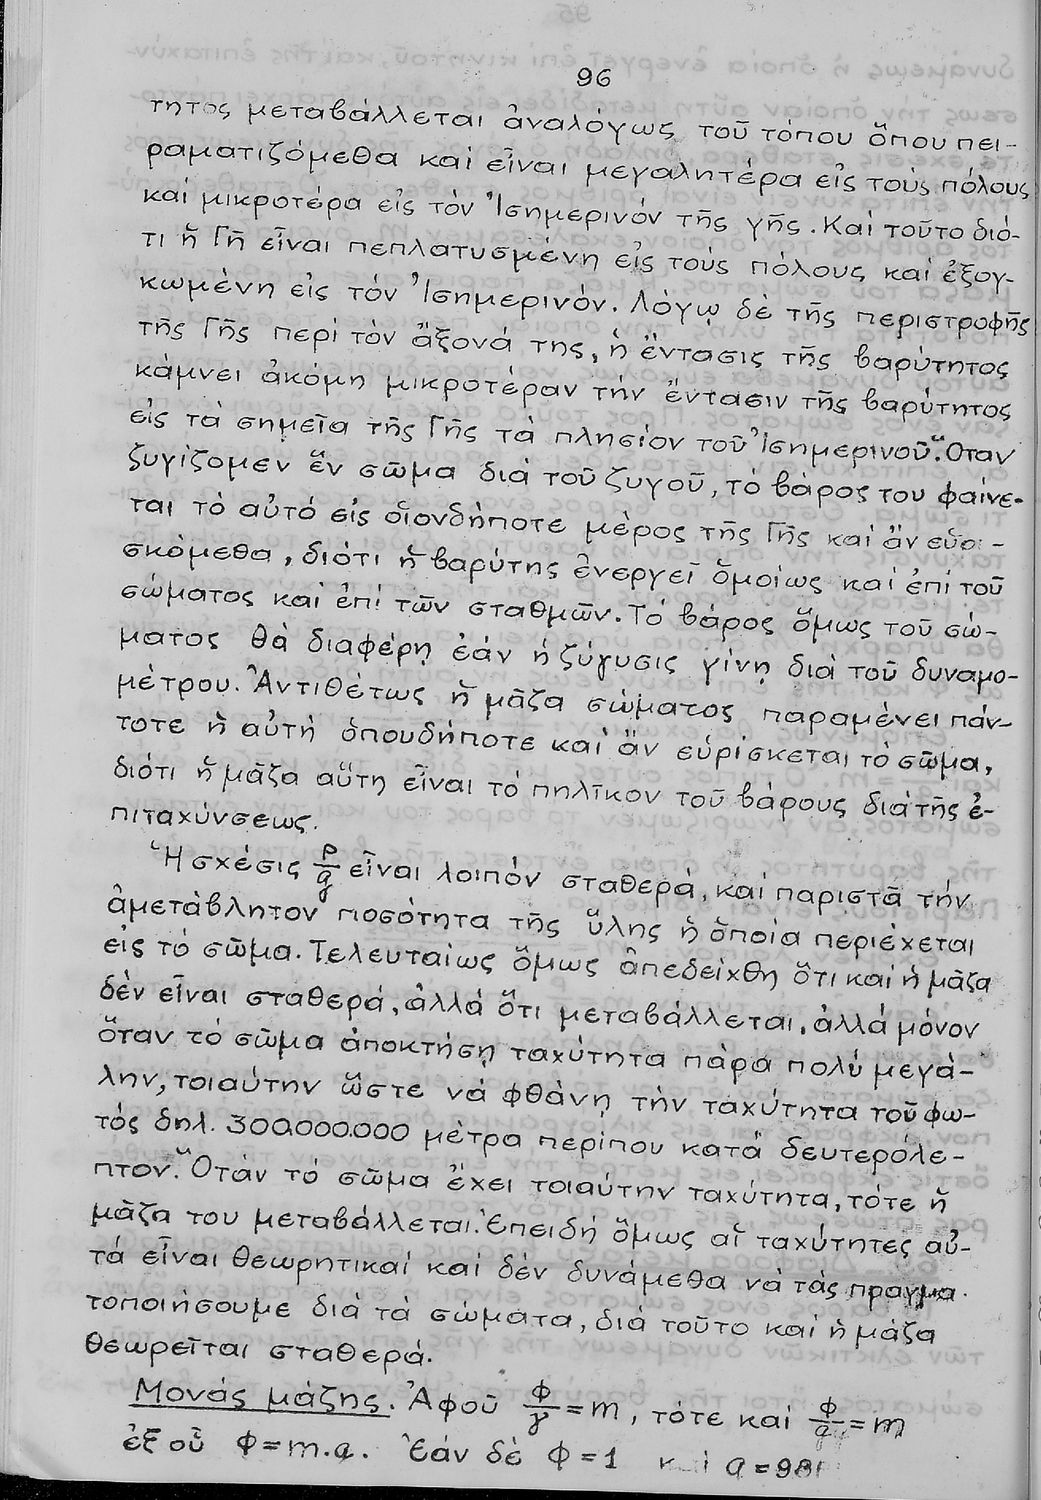 96
τητος μεταβάλλεται ἀναλόγως τοῦ τόπου ὅπου πει-
ραματιζόμεθα καί εἶναι μεγαλητέρα εἰς τούς πόλους
καί μικροτέρα εἰς τόν Ἰσημερινόν τῆς γῆς. Καί τοῦτο διό-
τι ἡ Γῆ εἶναι πεπλατυσμένη εἰς τούς πόλους καί ἐξογ-
κωμένη εἰς τόν Ἰσημερινόν. Λόγῳ δέ τῆς περιστροφῆς
τῆς Γῆς περί τόν ἄξονά της, ἡ ἔντασις τῆς βαρύτητος
κάμνει ἀκόμη μικροτέραν τήν ἔντασιν τῆς βαρύτητος
εἰς τά σημεῖα τῆς Γῆς τά πλησίον τοῦ Ἰσημερινοῦ. Ὅταν
ζυγίζομεν ἕν σῶμα διά τοῦ ζυγοῦ, τό βάρος του φαίνε-
ται τό αὐτό εἰς οἱονδήποτε μέρος τῆς Γῆς καί ἄν εὑρι-
σκόμεθα, διότι ἡ βαρύτης ἐνεργεῖ ὁμοίως καί ἐπί τοῦ
σώματος καί ἐπί τῶν σταθμῶν. Τό βάρος ὅμως τοῦ σώ-
ματος θά διαφέρῃ ἐάν ἡ ζύγυσις γίνῃ διά τοῦ δυναμο-
μέτρου. Ἀντιθέτως ἡ μᾶζα σώματος παραμένει πάν-
τοτε ἡ αὐτή ὁπουδήποτε καί ἄν εὑρίσκεται τό σῶμα,
διότι ἡ μᾶζα αὕτη εἶναι τό πηλῖκον τοῦ βάρους διά τῆς ἐ-
πιταχύνσεως.
Ἡ σχέσις P/g εἶναι λοιπόν σταθερά, καί παριστᾶ τήν
ἀμετάβλητον ποσότητα τῆς ὕλης ἡ ὁποία περιέχεται
εἰς τό σῶμα. Τελευταίως ὅμως ἀπεδείχθη ὅτι καί ἡ μᾶζα
δέν εἶναι σταθερά, ἀλλά ὅτι μεταβάλλεται, ἀλλά μόνον
ὅταν τό σῶμα ἀποκτήσῃ ταχύτητα πάρα πολύ μεγά-
λην, τοιαύτην ὥστε νά φθάνῃ τήν ταχύτητα τοῦ φω-
τός δηλ. 300.000.000 μέτρα περίπου κατά δευτερόλε-
πτον. Ὅταν τό σῶμα ἔχει τοιαύτην ταχύτητα, τότε ἡ
μᾶζα του μεταβάλλεται. Ἐπειδή ὅμως αἱ ταχύτητες αὐ-
τά εἶναι θεωρητικαί καί δέν δυνάμεθα νά τάς πραγμα-
τοποιήσουμε διά τά σώματα, διά τοῦτο καί ἡ μάζα
θεωρεῖται σταθερά.
Μονάς μάζης. Ἀφοῦ Φ/γ = m, τότε καί Φ/g = m
ἐξ οὗ Φ = m.a. Ἐάν δέ Φ = 1 καί a = 981